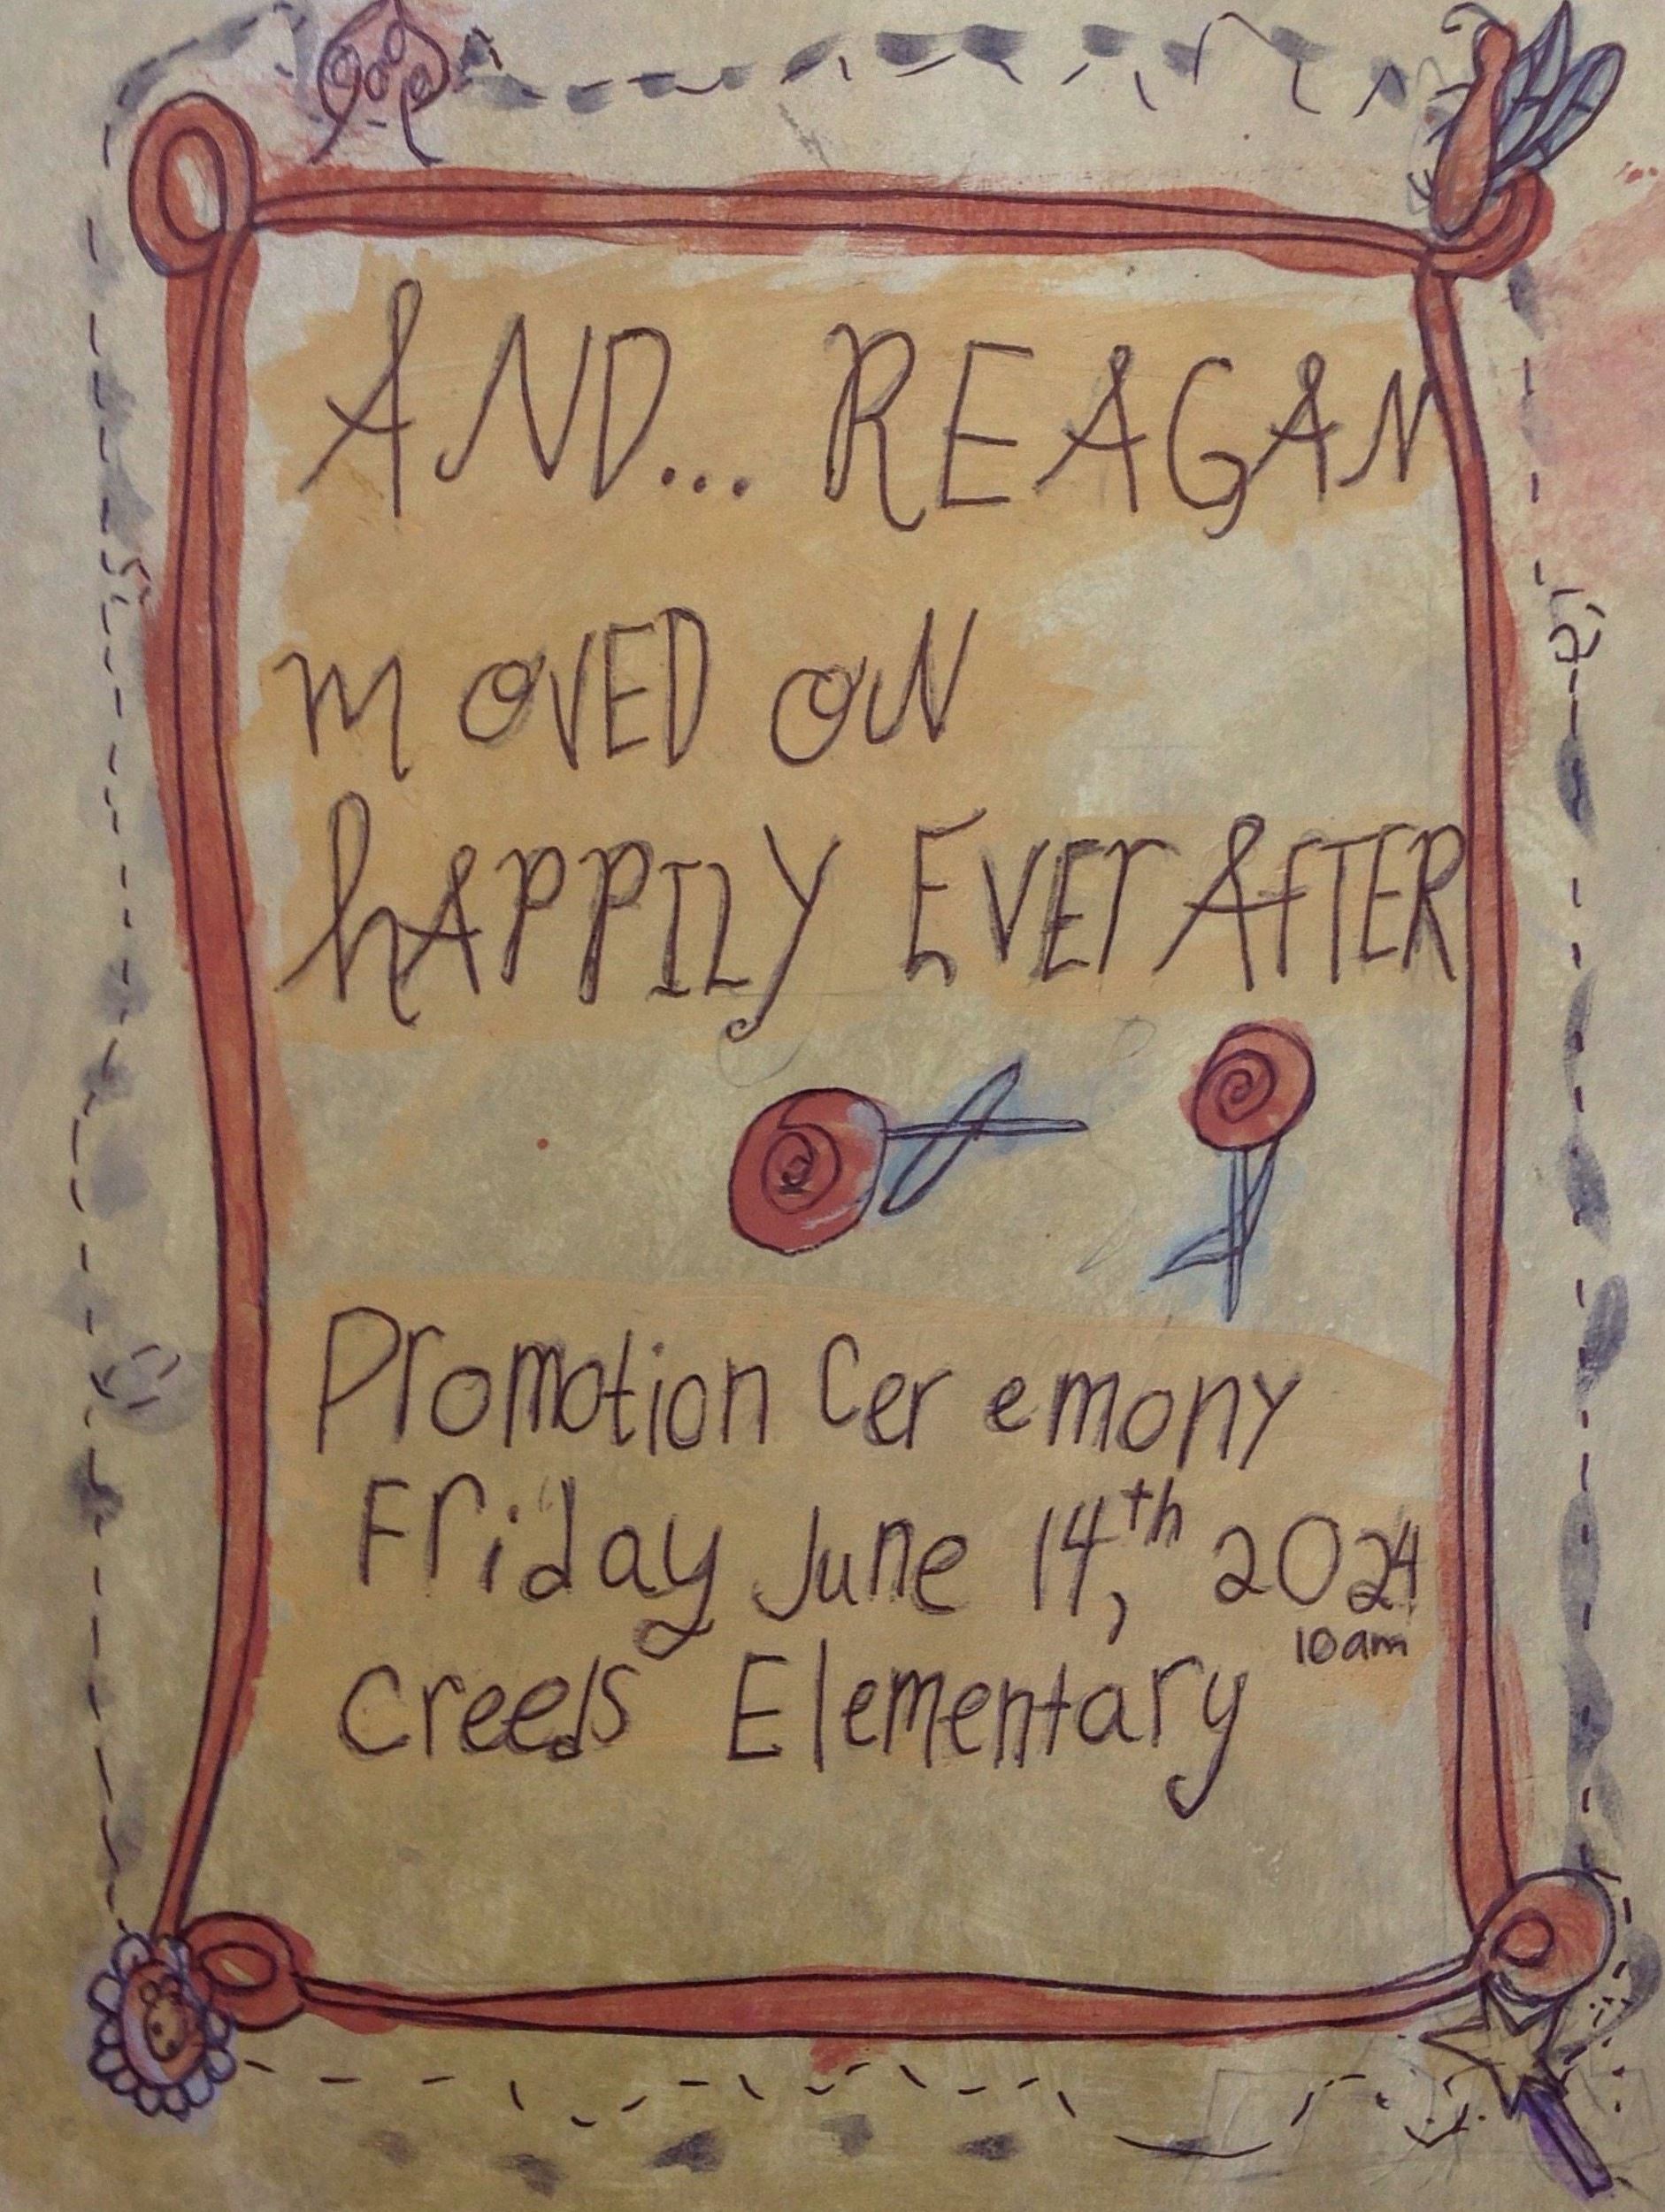 AND... REAGAN
mOVED ON
hAPPILY EVEr AfTER
Promotion Ceremony
Friday June 14th, 2024
10am
Creeds Elementary